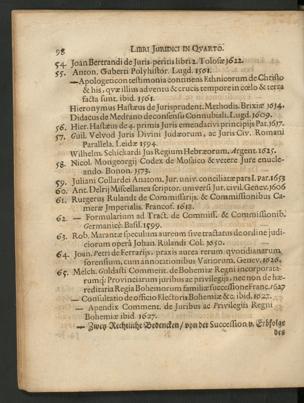 98 LIBRI JURIDICI IN QVARTO.
54. Joan Bertrandi de Juris peritis libri 2. Tolosæ 1622.
55. Anton. Guberti Polyhistor. Lugd. 1561.
— Apologeticon testimonia continens Ethnicorum de Christo
& his, quæ illius adventu & crucis tempore in cœlo & terra
facta sunt. ibid. 1561.
Hieronymus Hastæus de Jurisprudent. Methodis. Brixiæ 1634.
Didacus de Medrano de consensu Connubiali. Lugd. 1609.
56. Hier. Hastæus de 4. primis Juris emendativi principijs Par. 1617.
57. Guil. Velvod Juris Divini Judæorum, ac Juris Civ. Romani
Parallela. Leidæ 1594.
Wilhelm. Schickardi Jus Regium Hebræorum. Argent. 1625.
58. Nicol. Mongeorgij Codex de Mosaico & vetere Jure enucle-
ando. Bonon. 1573.
59. Juliani Collardei Anatom. Jur. univ. conciliatæ pars I. Par. 1653
60. Ant. Delrij Miscellanea scriptor. universi Jur. civil. Genev. 1606
61. Rutgerus Rulandt de Commissarijs & Commissionibus Ca-
meræ Imperialis. Francof. 1618.
62. — Formularium ad Tract. de Commiss. & Commissionib.
Germanicè. Basil. 1599.
63. Rob. Marantæ speculum aureum sive tractatus de ordine judi-
ciorum operâ Johan. Rulands Col. 1650.
64. Joan. Petri de Ferrarijs praxis aurea rerum quotidianarum
forensium, cum annotationibus Variorum. Genev. 1626.
65. Melch. Goldasti Comment. de Bohemiæ Regni incorporata-
rumq; Provinciarum juribus ac privilegijs, nec non de hæ-
reditaria Regia Bohemorum familiæ successione Franc. 1627
— Consultatio de officio Electoris Bohemiæ &c. ibid. 1627.
— Apendix Comment. de Juribus ac Privilegijs Regni
Bohemiæ ibid. 1627.
— Zwey Rechtliche Bedencken / von der Succession u. Erbfolge
des